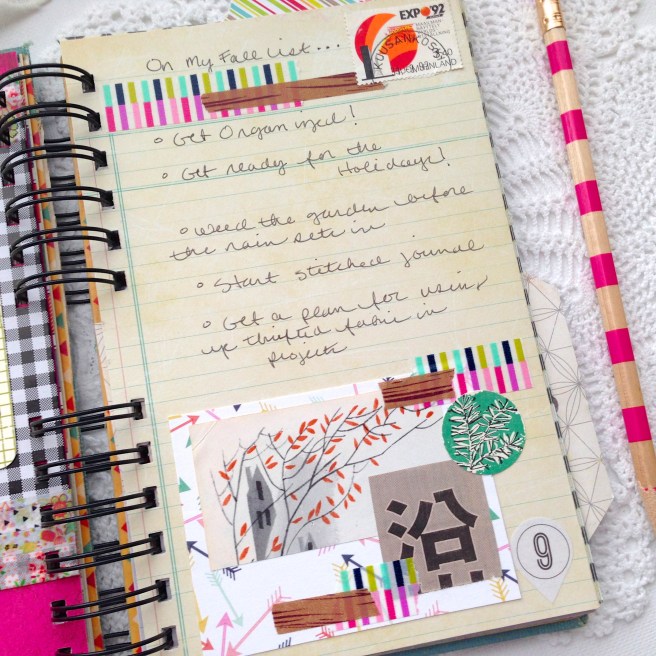 EXPO '92
KOUSANKOSKI
On My Fall List...
° Get Organized!
° Get ready for the
Holidays!
° Weed the garden before
the rain sets in
° Start stitched journal
° Get a plan for using
up thrifted fabric in
projects
沿
9